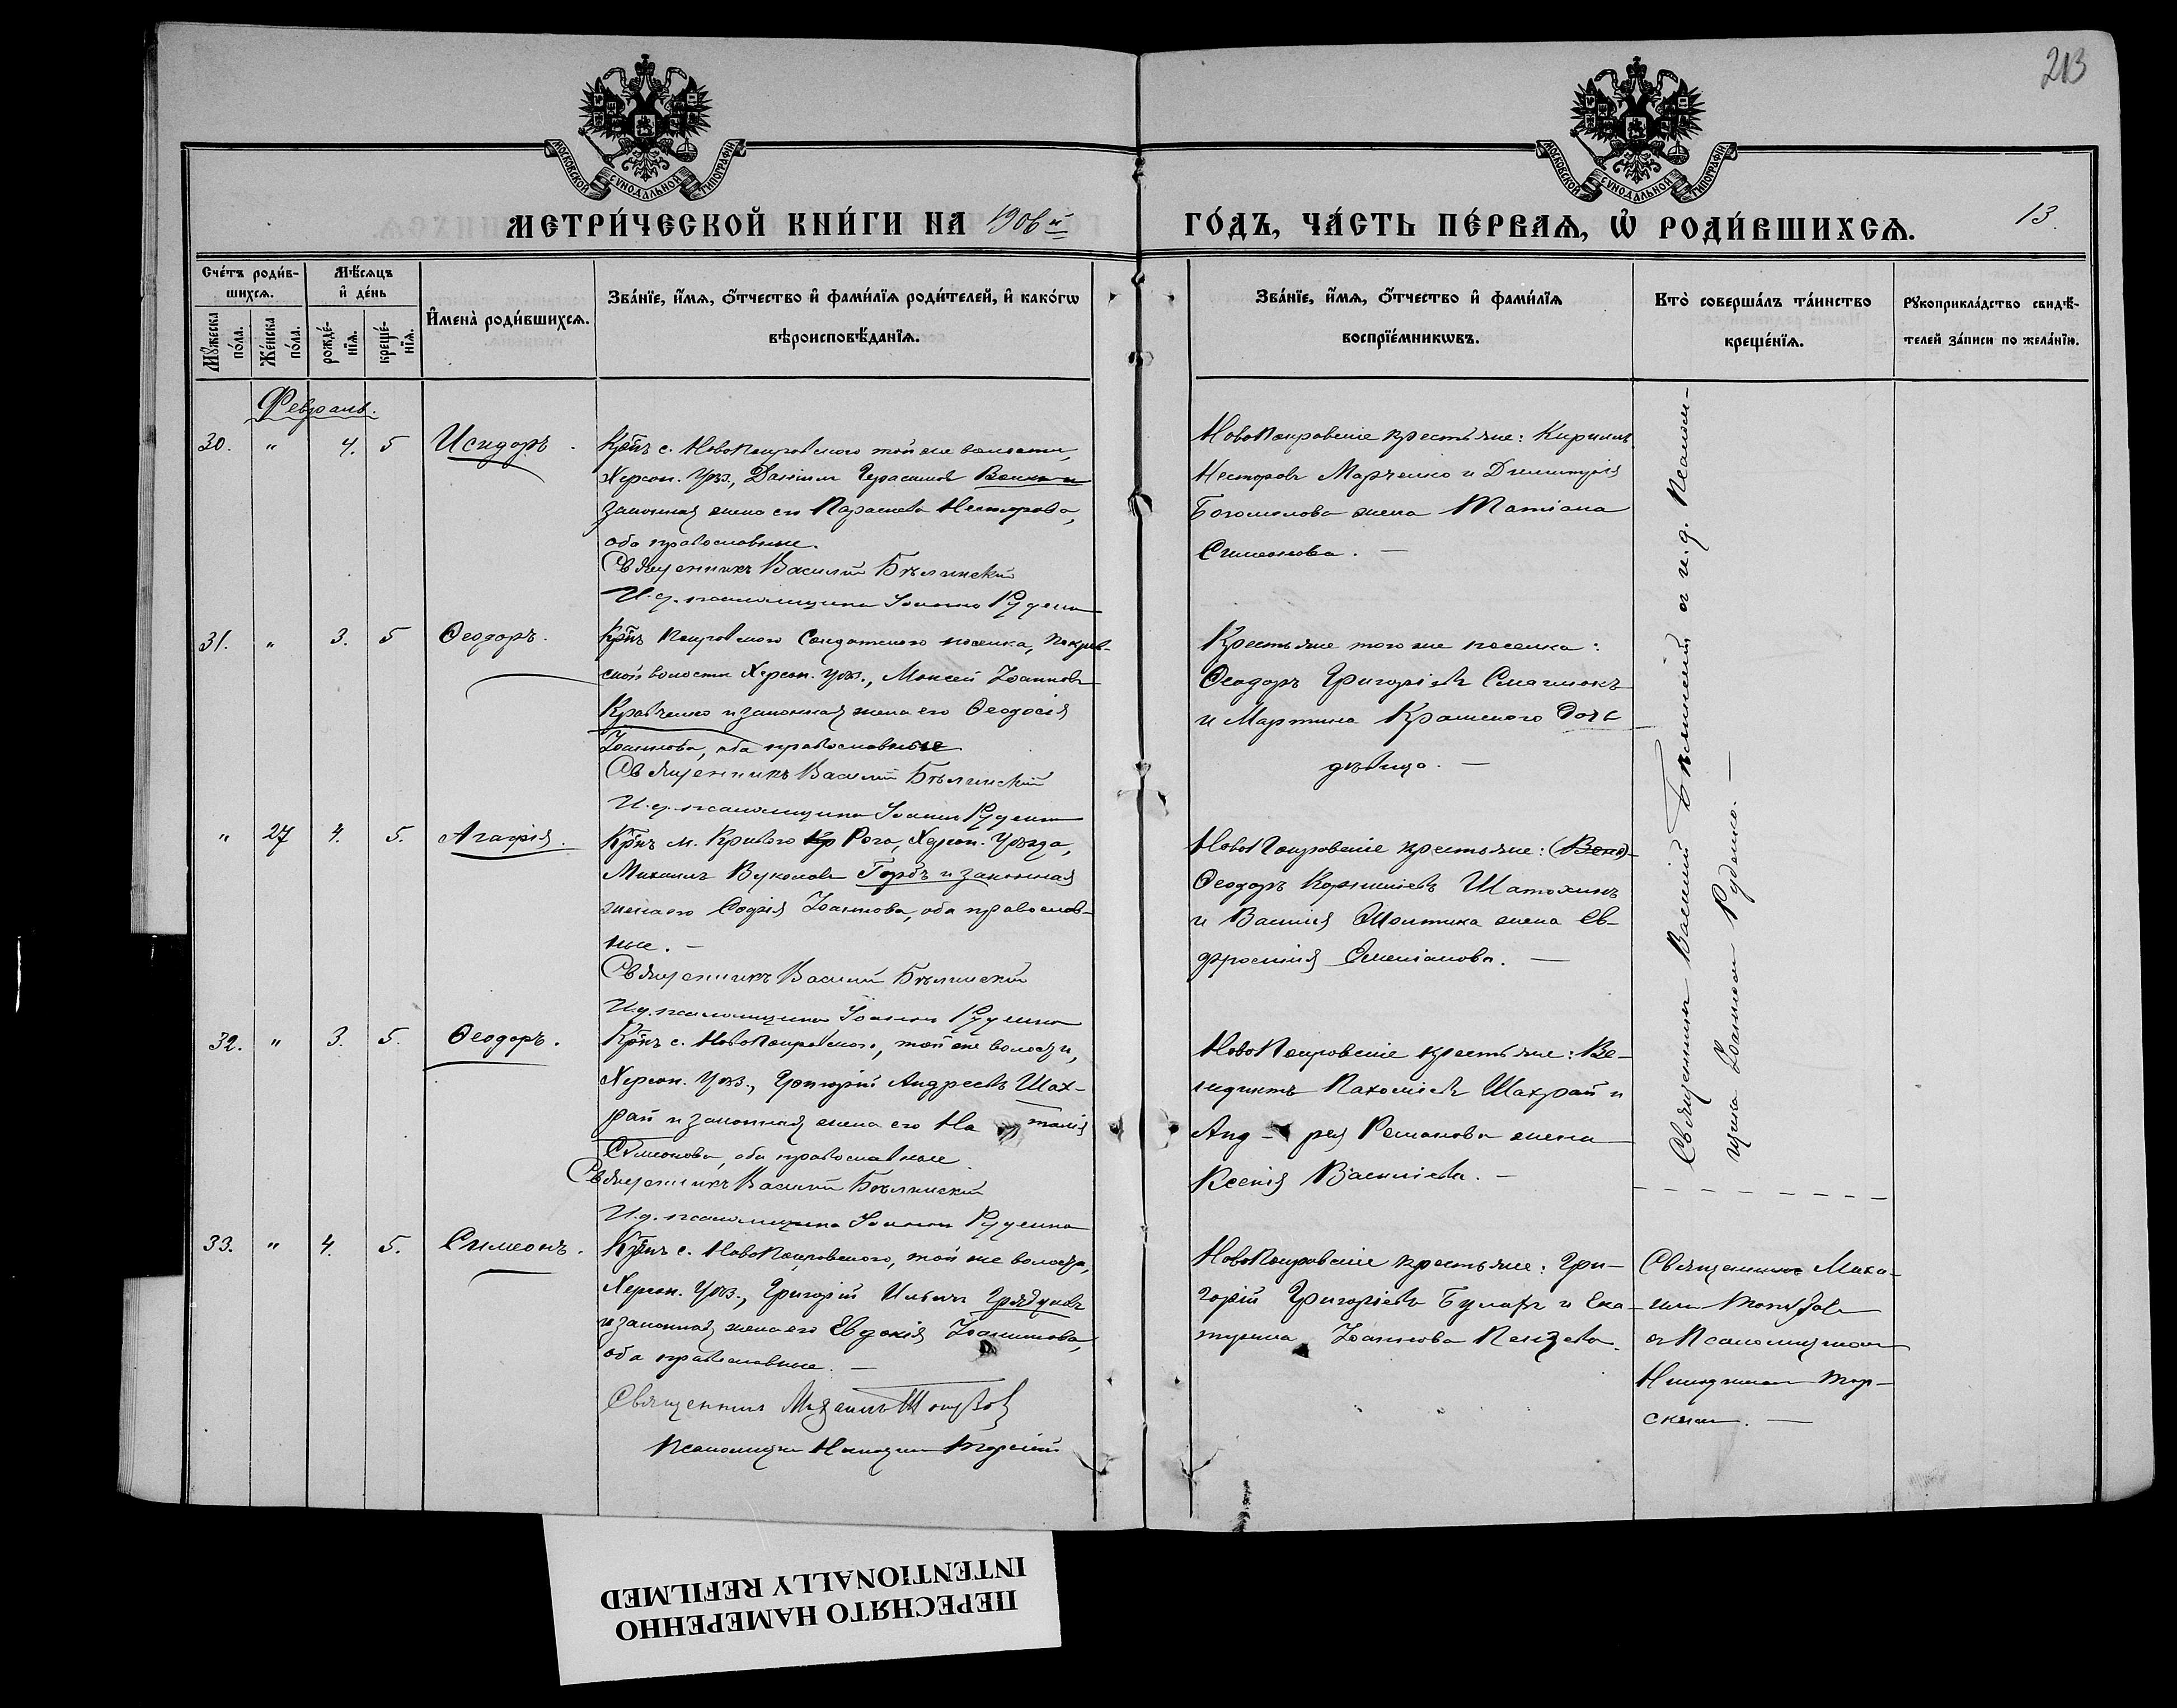 213
МОСКОВСКОЙ СУНОДАЛЬНОЙ ТИПОГРАФІИ
МОСКОВСКОЙ СУНОДАЛЬНОЙ ТИПОГРАФІИ
МЕТРИ́ЧЕСКОЙ КНИ́ГИ НА 1906й
ГО́ДЪ, ЧА́СТЬ ПЕ́РВАѦ, Ѡ҆ РОДИ́ВШИХСѦ.
13.
Сче́тъ роди́в-
шихсѧ.
Мѣ́сѧцъ
и҆ де́нь
Мꙋ́жеска по́ла.
Же́нска по́ла.
рожде́-нїѧ.
креще́-нїѧ.
И҆мена̀ роди́вшихсѧ.
Зва́нїе, и҆́мѧ, ѻ҆́тчество и҆ фами́лїѧ роди́телей, и҆ како́гѡ
вѣроисповѣ́данїѧ.
Зва́нїе, и҆́мѧ, ѻ҆́тчество и҆ фами́лїѧ
воспрїе́мникѡвъ.
Кто̀ соверша́лъ та́инство
креще́нїѧ.
Рꙋкоприкла́дство свидѣ́-
телей за́писи по жела́нїю.
Февраль.
30. " 4. 5 Исидоръ.
Крнъ с. Новопокровскаго той же волости,
Херсон. Уѣз., Даніилъ Герасимовъ
законная жена его Параскева Несторова,
оба православные.
Священникъ Василій Бѣлинскій
И. д. псаломщика Іоаннъ Руденко
Новопокровскіе крестьяне: Кириллъ
Несторовъ Марченко и Димитрія
Богомолова жена Татіана
Симеонова. —
31. " 3. 5 Ѳеодоръ.
Крнъ Покровскаго Солдатскаго поселка, Покров-
ской волости Херсон. уѣз., Моисей Іоанновъ
Кравченко и законная жена его Ѳеодосія
Іоаннова, оба православные
Священникъ Василій Бѣлинскій
И. д. псаломщика Іоаннъ Руденко
Крестьяне того же поселка:
Ѳеодоръ Григоріевъ
и Мартина дочь
дѣвица. —
" 27 4. 5. Агафія.
Крнъ м. Кривого Кр Рога, Херсон. Уѣзда,
Михаилъ Вуколовъ Горбъ и законная
жена его Софія Іоаннова, оба православ-
ные. —
Священникъ Василій Бѣлинскій
И. д. псаломщика Іоаннъ Руденко
Новопокровскіе крестьяне:
Ѳеодоръ Корниліевъ Шатохинъ
и Василія жена Ев-
фросинія —
32. " 3. 5. Ѳеодоръ.
Крнъ с. Новопокровскаго, той же волости,
Херсон. Уѣз., Григорій Андреевъ Шах-
рай и законная жена его На талія
Симеонова, оба православные.
Священникъ Василій Бѣлинскій
И. д. псаломщика Іоаннъ Руденко
Новопокровскіе крестьяне: Ве-
недиктъ Пахоміевъ Шахрай и
Анд- рея Романова жена
Ксенія Василіева. —
Священникъ Василій Бѣлинскій и и. д. Псалом-
щика Іоаннъ Руденко. —
33. " 4. 5. Симеонъ.
Крнъ с. Новопокровскаго, той же волости,
Херсон. Уѣз., Григорій Ильинъ
и законная жена его Евдокія Іоаннова,
оба православные. —
Священникъ Михаилъ
Псаломщикъ Никодимъ Торскій
Новопокровскіе крестьяне: Гри-
горій Григоріевъ и Ека-
терина Іоаннова
Священникъ Миха-
илъ
и Псаломщикъ
Никодимъ Тор-
скій. —
ПЕРЕСНЯТО НАМЕРЕННО
INTENTIONALLY REFILMED